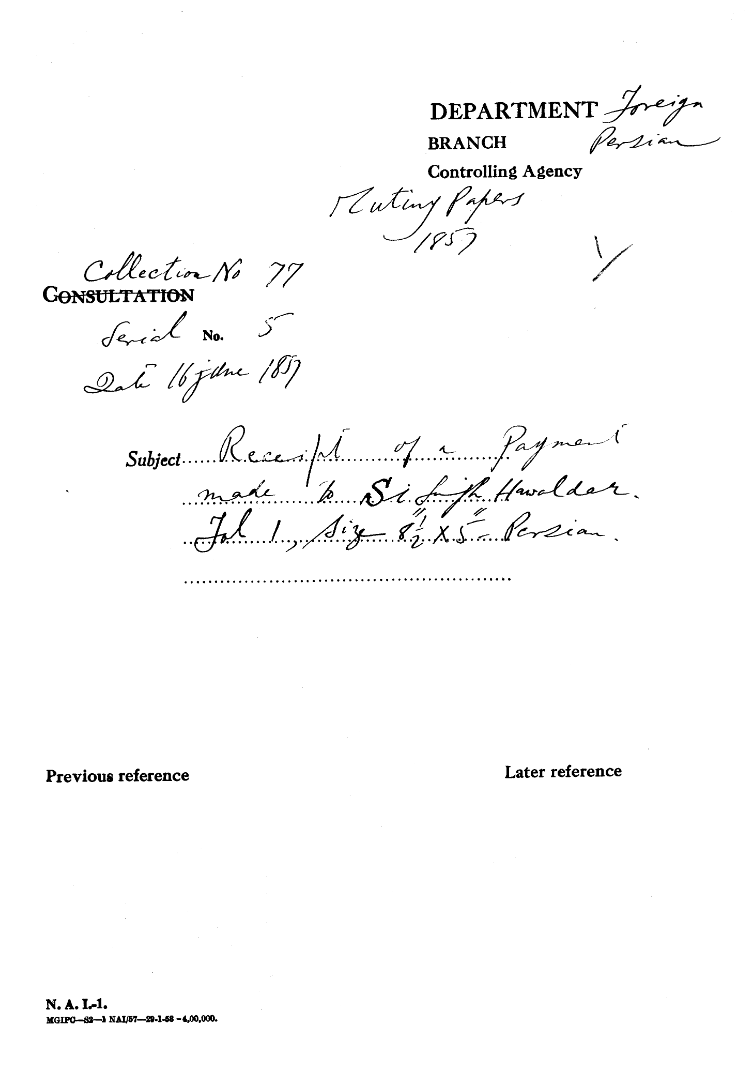 DEPARTMENT Foreign
BRANCH Persian
Controlling Agency
Mutiny Papers
1857
Collection No 77
CONSULTATION
Serial No. 5
Date 16 june 1857
Subject Receipt of a Payment
made to Singh Hawaldar.
Fol 1, Size 8½" X 5" Persian.
Previous reference
Later reference
N. A. I.-1.
MGIPC—S2—1 NAI/57—29-1-58 -4,00,000.